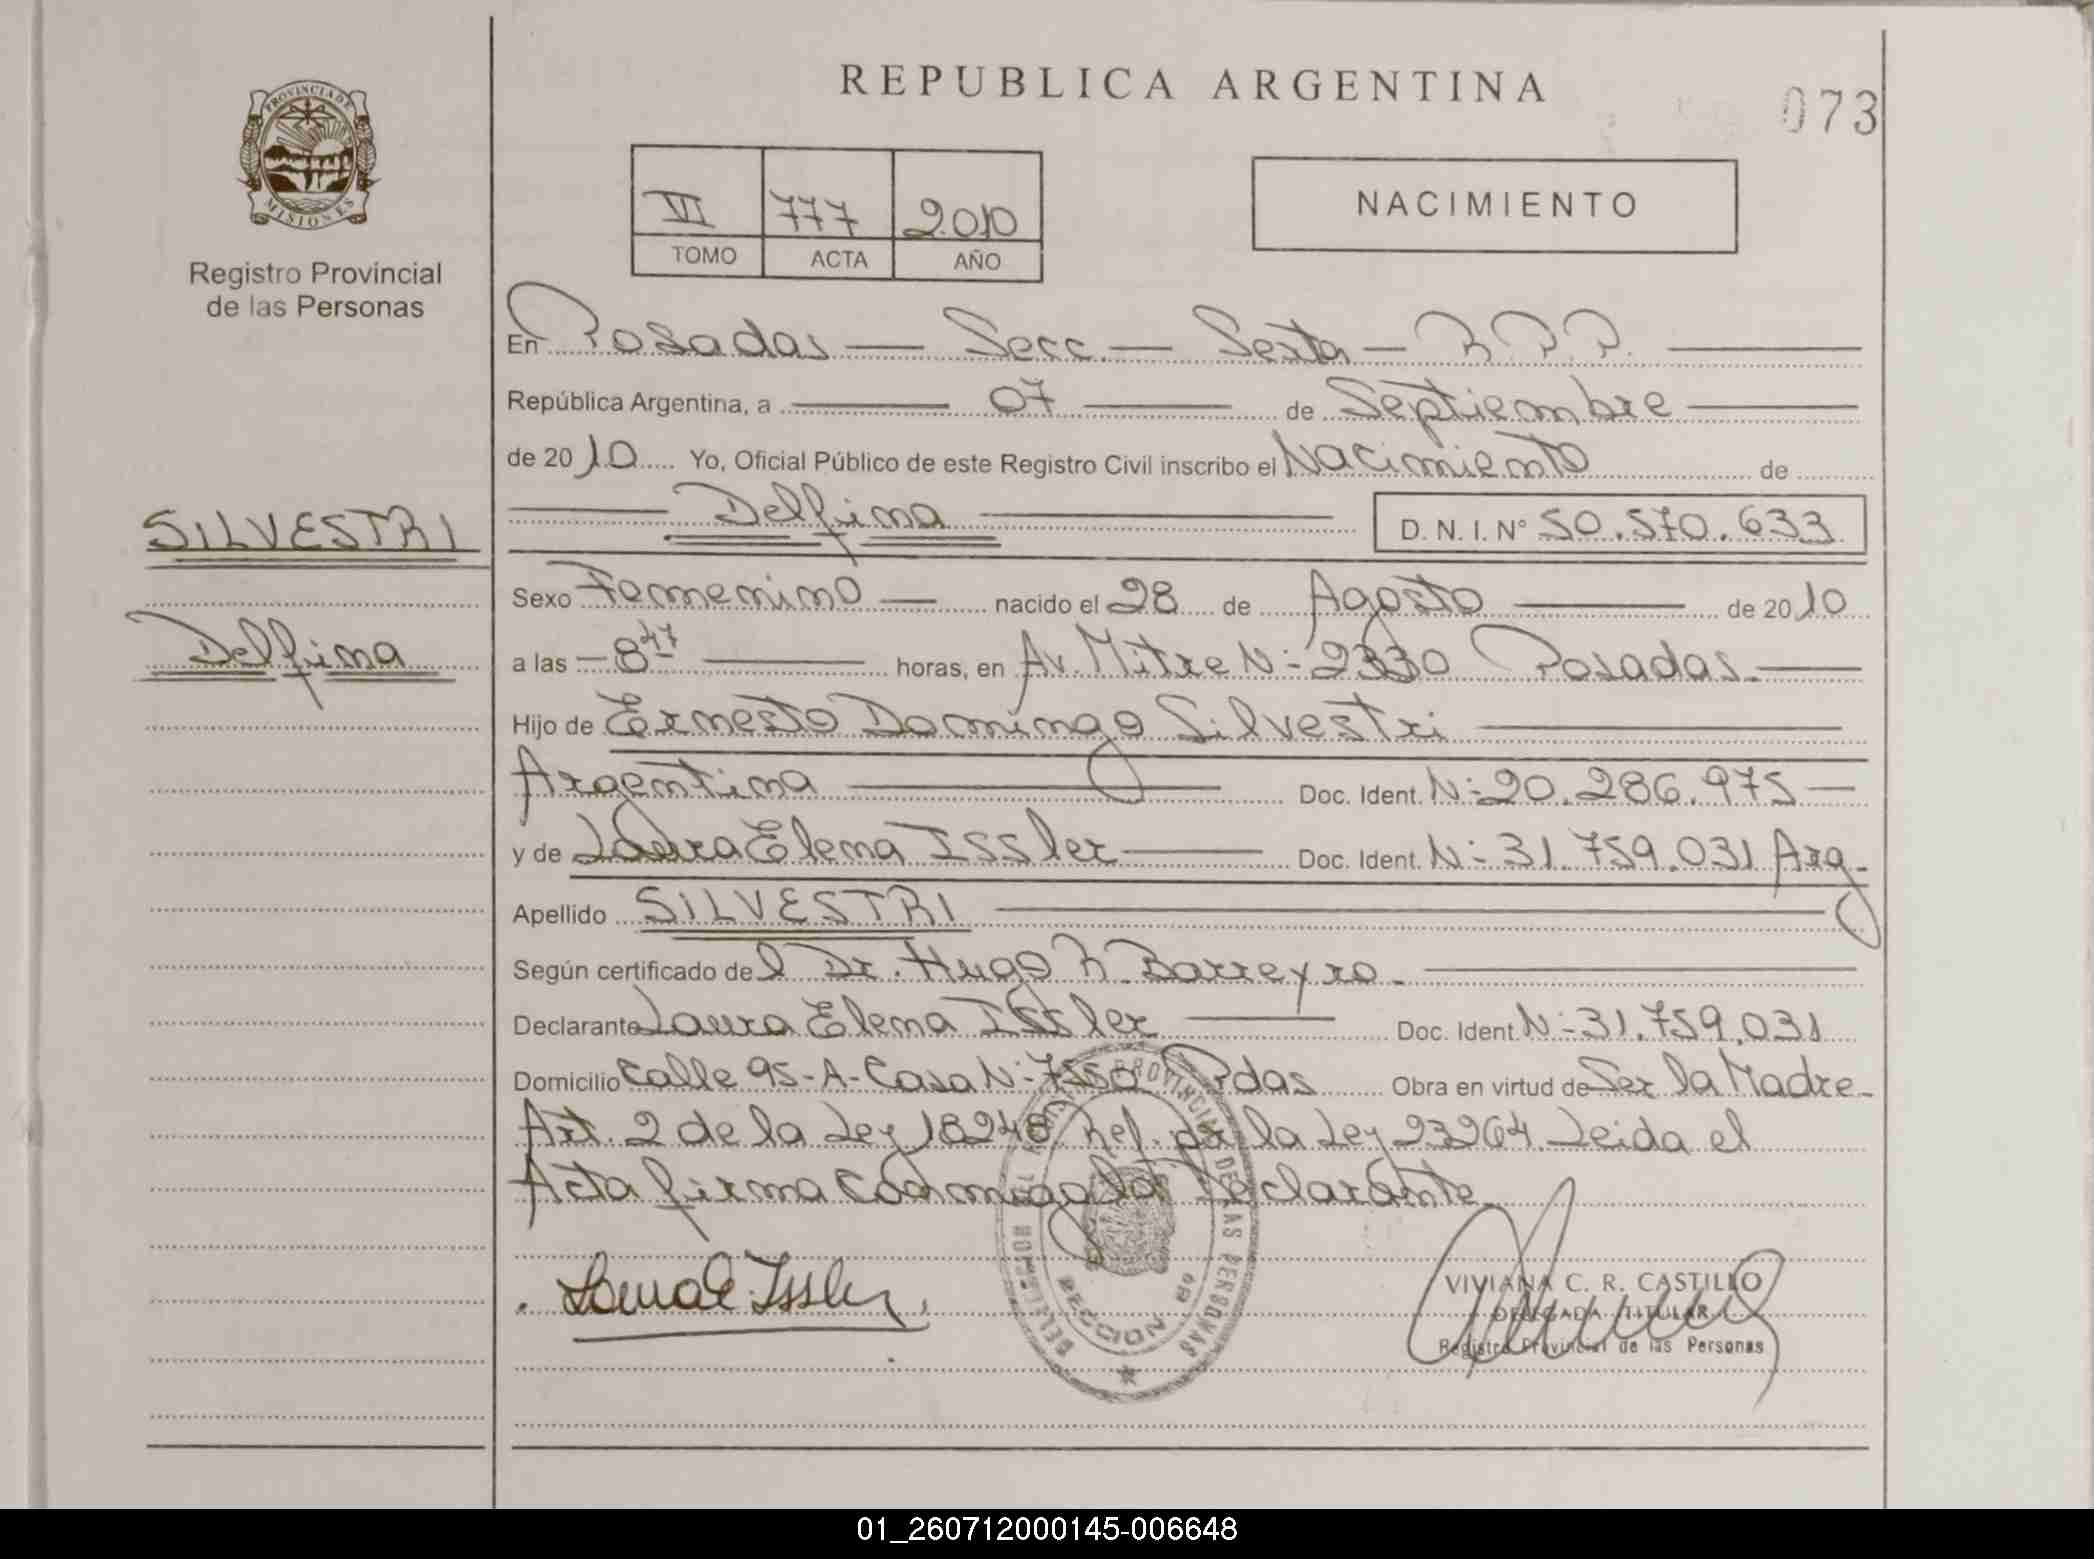 REPUBLICA ARGENTINA
073
PROVINCIA DE
MISIONES
Registro Provincial
de las Personas
VI 777 2010
TOMO ACTA AÑO
NACIMIENTO
En Posadas — Secc. — Sexta — R.P.P.
República Argentina, a 07 de Septiembre
de 2010 Yo, Oficial Público de este Registro Civil inscribo el Nacimiento de
Delfina D. N. I. N° 50.570.633
SILVESTRI
Delfina
Sexo Femenino — nacido el 28 de Agosto — de 2010
a las — 8 47 — horas, en Av. Mitre N: 2330 Posadas. —
Hijo de Ernesto Domingo Silvestri
Argentina — Doc. Ident. N:- 20.286.975 —
y de Laura Elena Issler — Doc. Ident. N:- 31.759.031 Arg.
Apellido SILVESTRI
Según certificado del Dr. Hugo R. Barreyro. —
Declarante Laura Elena Issler — Doc. Ident. N:- 31.759.031
Domicilio Calle 95-A- Casa N:- 7550 Pdas Obra en virtud de Ser la Madre.
Art. 2 de la Ley 18248 Ref. por la Ley 23264. Leida el
Acta firma conmigo la Declarante.
Laura E. Issler
REGISTRO PROVINCIAL DE LAS PERSONAS
SECCION 6º
VIVIANA C. R. CASTILLO
DELEGADA TITULAR
Registro Provincial de las Personas
01_260712000145-006648